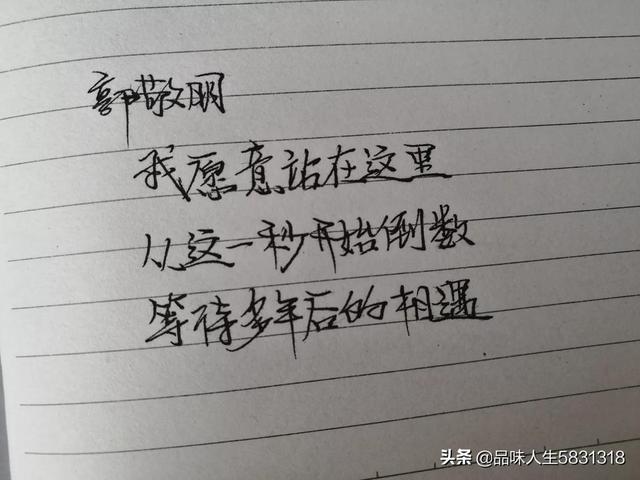 郭敬明
我愿意站在这里
从这一秒开始倒数
等待多年后的相遇
头条 @品味人生5831318